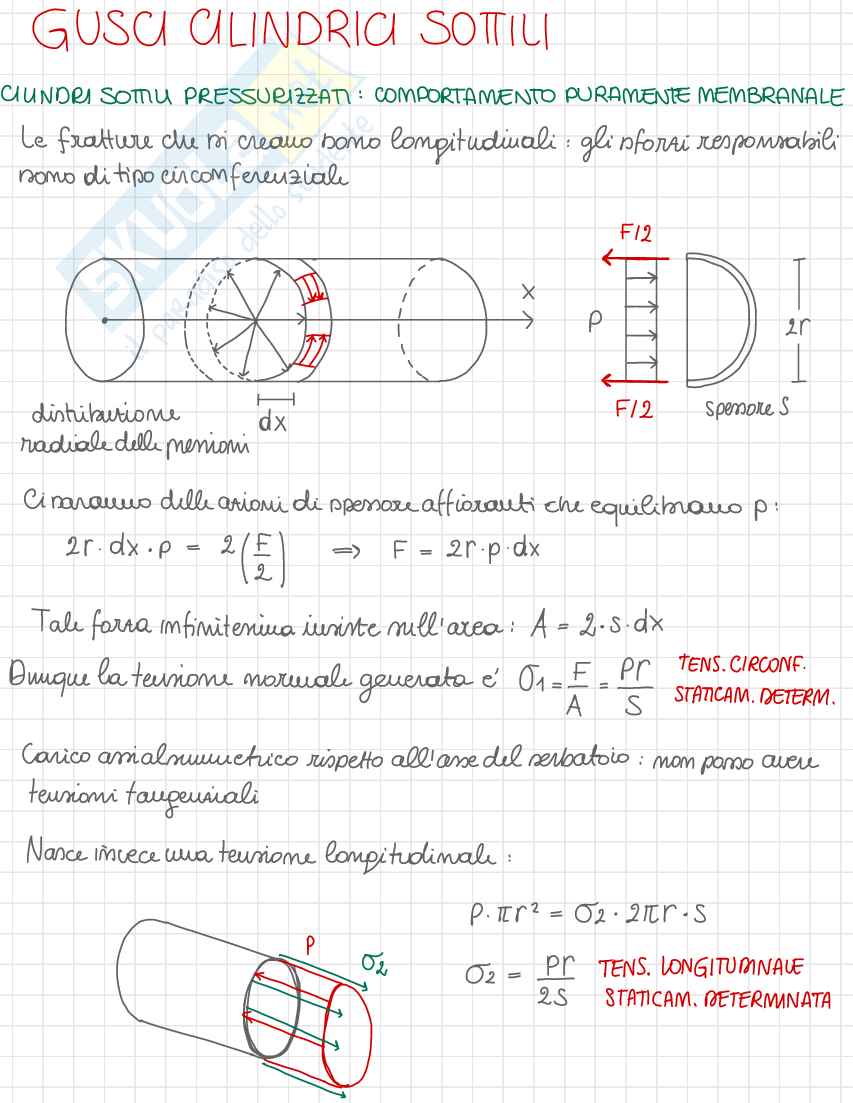 GUSCI CILINDRICI SOTTILI
CILINDRI SOTTILI PRESSURIZZATI: COMPORTAMENTO PURAMENTE MEMBRANALE
Le fratture che si creano sono longitudinali: gli sforzi responsabili
sono di tipo circonferenziale
SKUOLA.net
il paradiso dello studente
F/2
x
p
2r
F/2
spessore S
dx
distribuzione
radiale delle pressioni
Ci saranno delle azioni di spessore affioranti che equilibrano p:
2r · dx · p = 2(F/2) ⇒ F = 2r · p · dx
Tale forza infinitesima insiste sull'area: A = 2 · s · dx
Dunque la tensione normale generata e' σ1 = F/A = pr/S TENS. CIRCONF. STATICAM. DETERM.
Carico assialsimmetrico rispetto all'asse del serbatoio: non posso avere
tensioni tangenziali
Nasce invece una tensione longitudinale:
p · πr² = σ2 · 2πr · s
p
σ2
σ2 = pr/2S TENS. LONGITUDINALE STATICAM. DETERMINATA